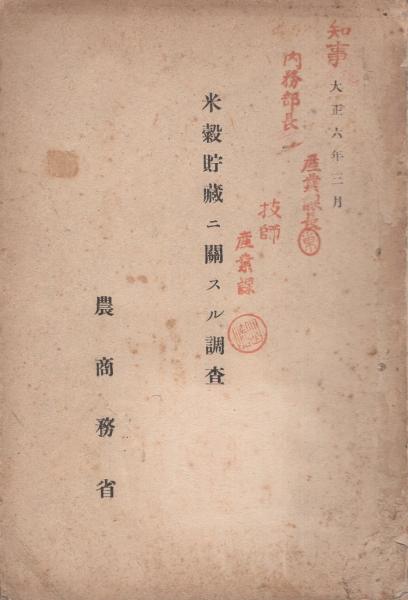 知事
大正六年三月
内務部長
産業課長
技師
産業課
米穀貯藏ニ關スル調査
農商務省